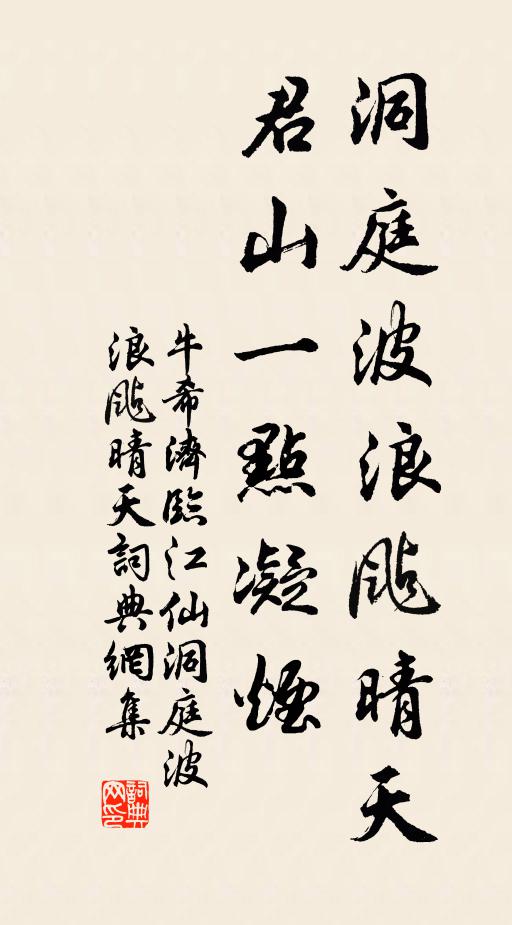 洞庭波浪颭晴天
君山一點凝煙
牛希濟臨江仙洞庭波
浪颭晴天詞典網集
詞典网印